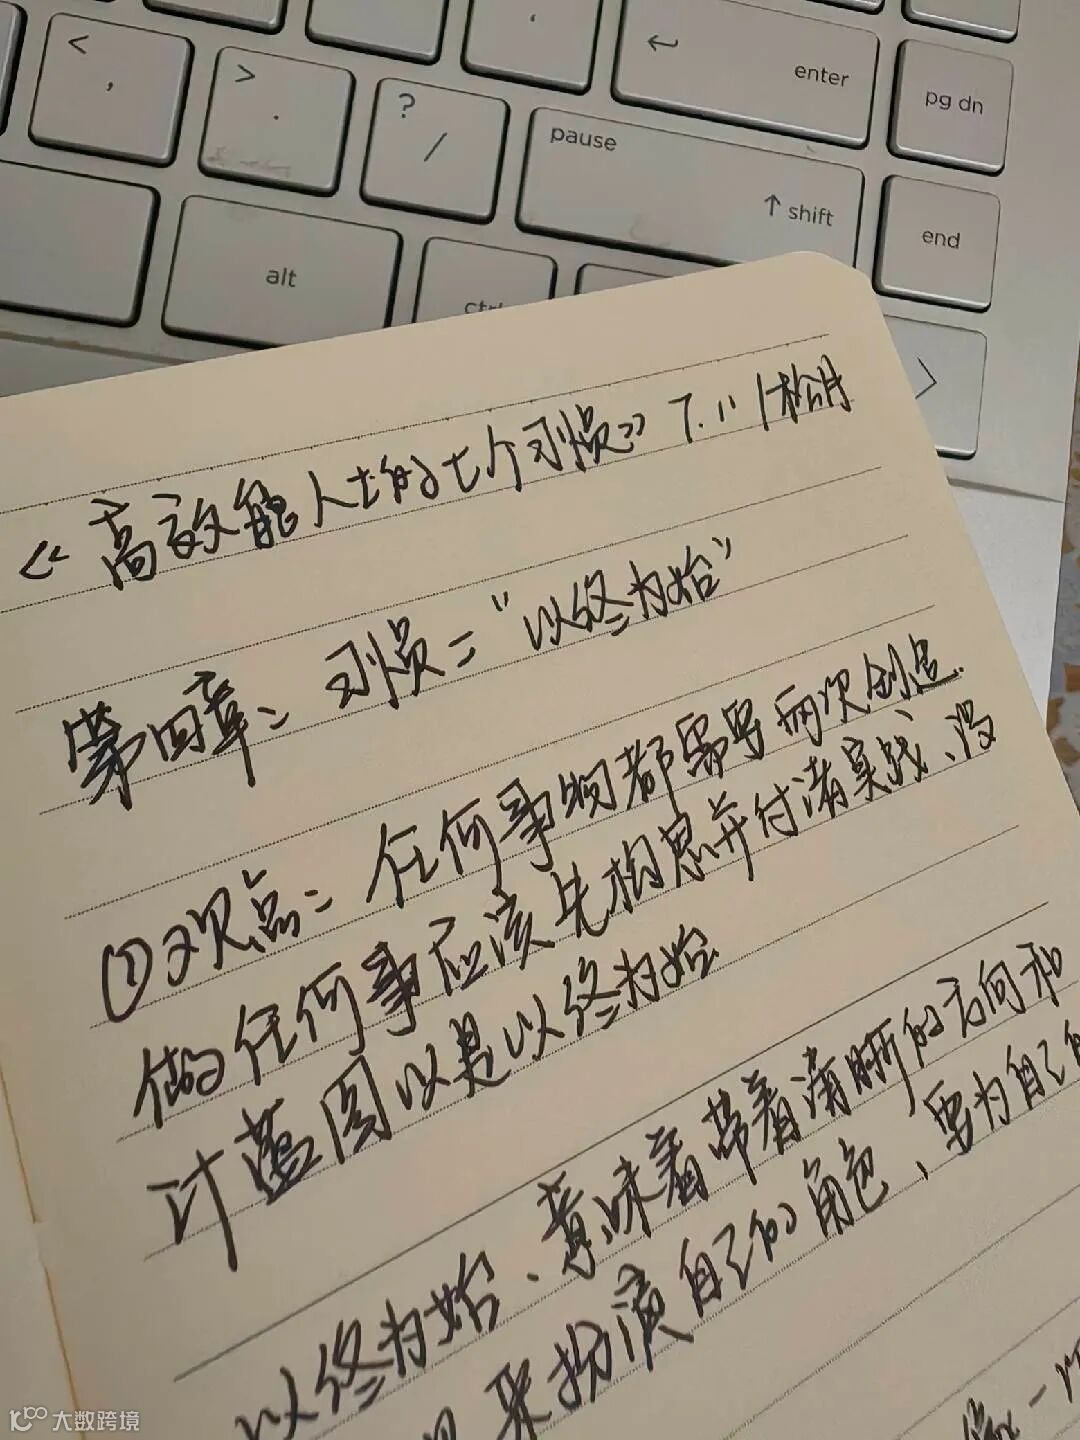 < ,
> .
? /
enter
pg dn
pause
shift
end
alt
ctrl
《高效能人士的七个习惯》 7.11
第四章：习惯二“以终为始”
①观点：任何事物都需要两次创造.
做任何事应该先构思并付诸实践、设
计蓝图以是以终为始
以终为始、意味着带着清晰的方向和
来扮演自己的角色、要为自己
大数跨境